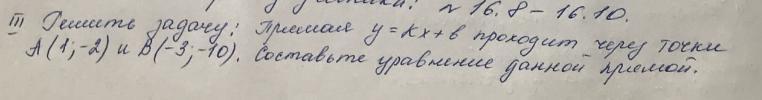 № 16.8 – 16.10.
III Решить задачу: Прямая y = kx + b проходит через точки
A (1; -2) и B (-3; -10). Составьте уравнение данной прямой.